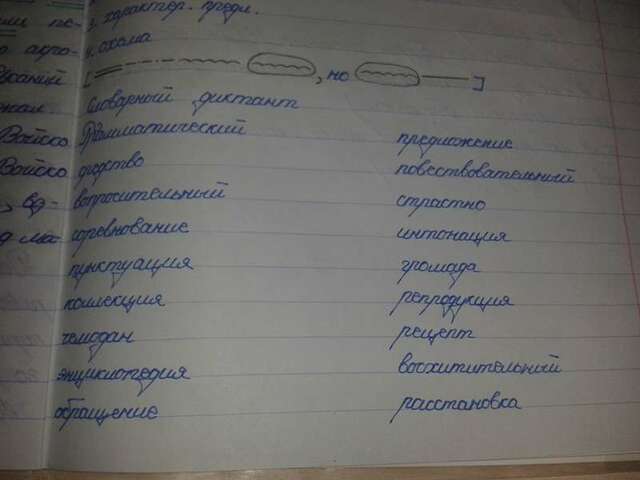 3. характер. предл.
4. схема
, но
Словарный диктант
Грамматический предложение
сходство повествовательный
вопросительный страстно
соревнование интонация
пунктуация громада
коллекция репродукция
чемодан рецепт
энциклопедия восхитительный
обращение расстановка